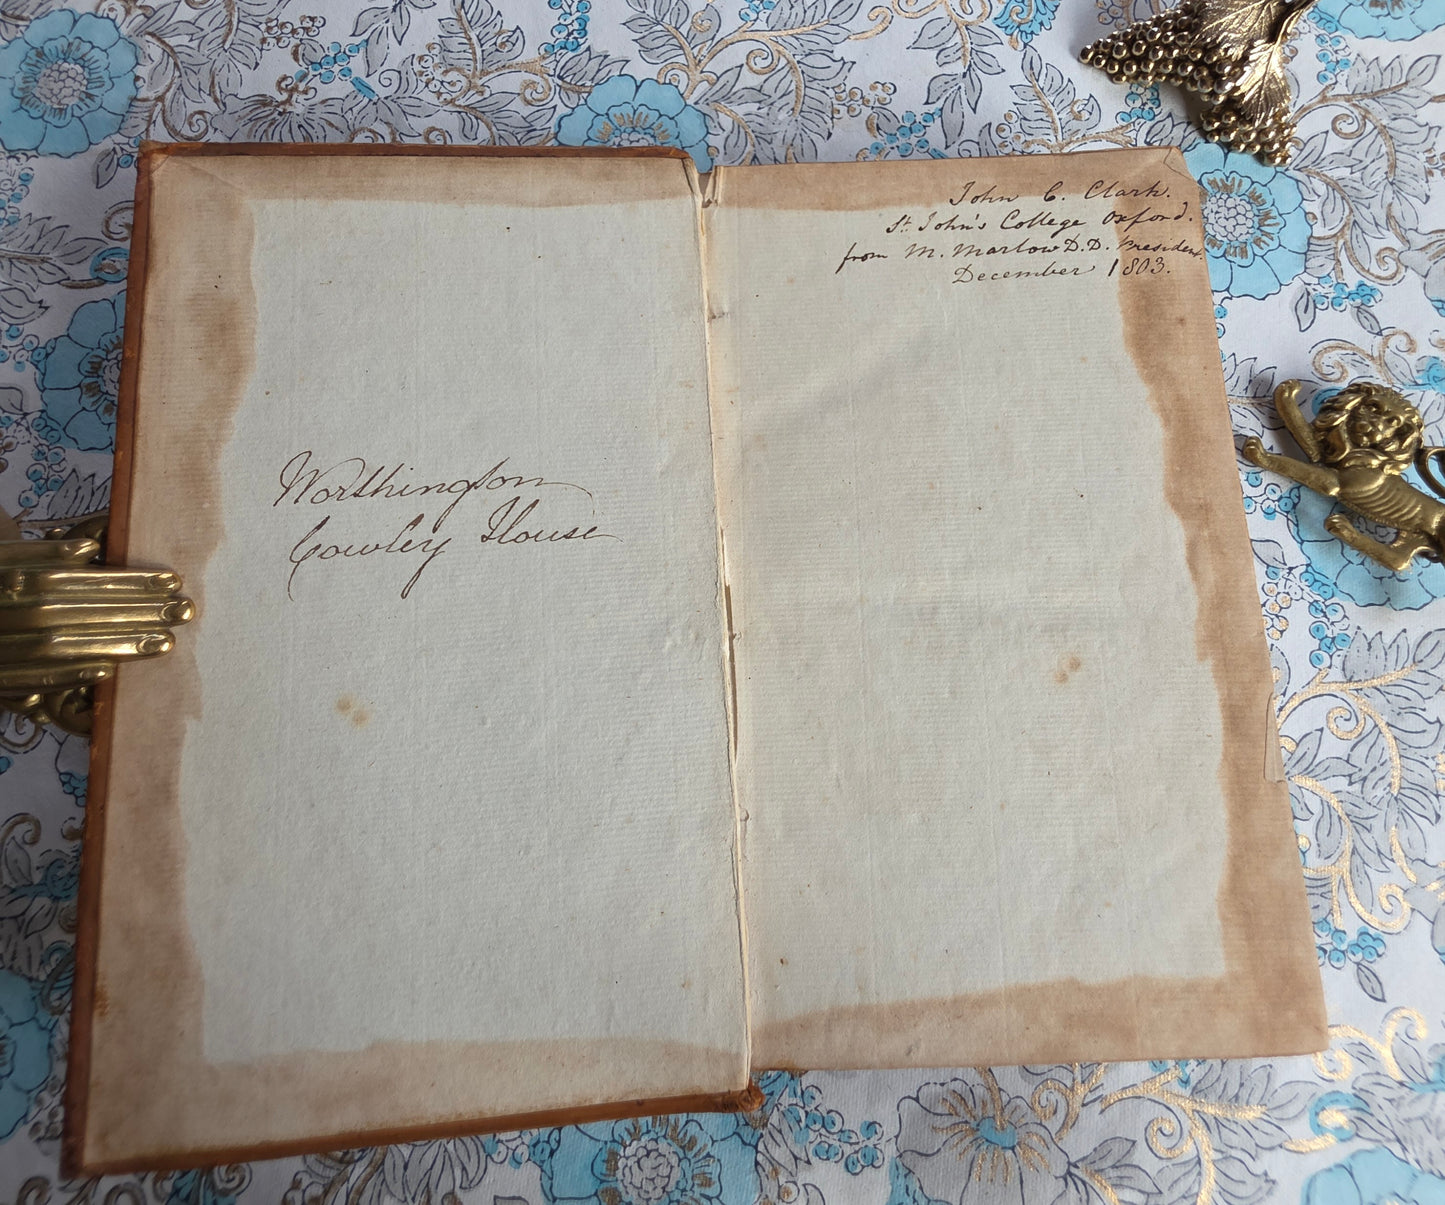 Worthington
Cowley House
John C. Clark.
St. John's College Oxford.
from M. Marlow D.D. President.
December 1803.